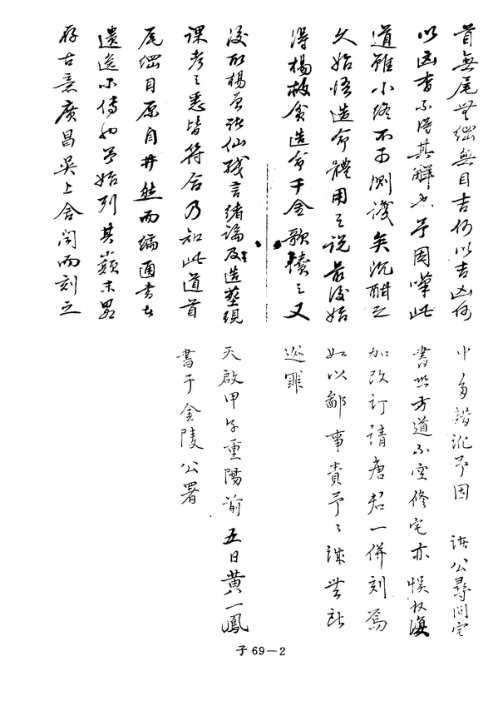 首無尾無綱無目吉何以吉凶何
以凶者不得其解也予因嘆此
道雖小終不可測淺矣沉酣之
久始悟造命體用之說最後始
得楊救貧造命千金歌讀之又
後取楊曾諸仙殘言緒論及造塟現
課考之悉皆符合乃知此道首
尾綱目原自井然而編通書者
遺逸不傳也予始列其巔末畧
存古意廣昌吳上舍聞而刻之
中多錯訛予因 諸公尋問室
書此方道不空修宅亦悞故復
加改訂請唐君一併刻焉
如以鄙事責予之謀無所
逃罪
天啟甲子重陽前五日黃一鳳
書于金陵公署
子69-2